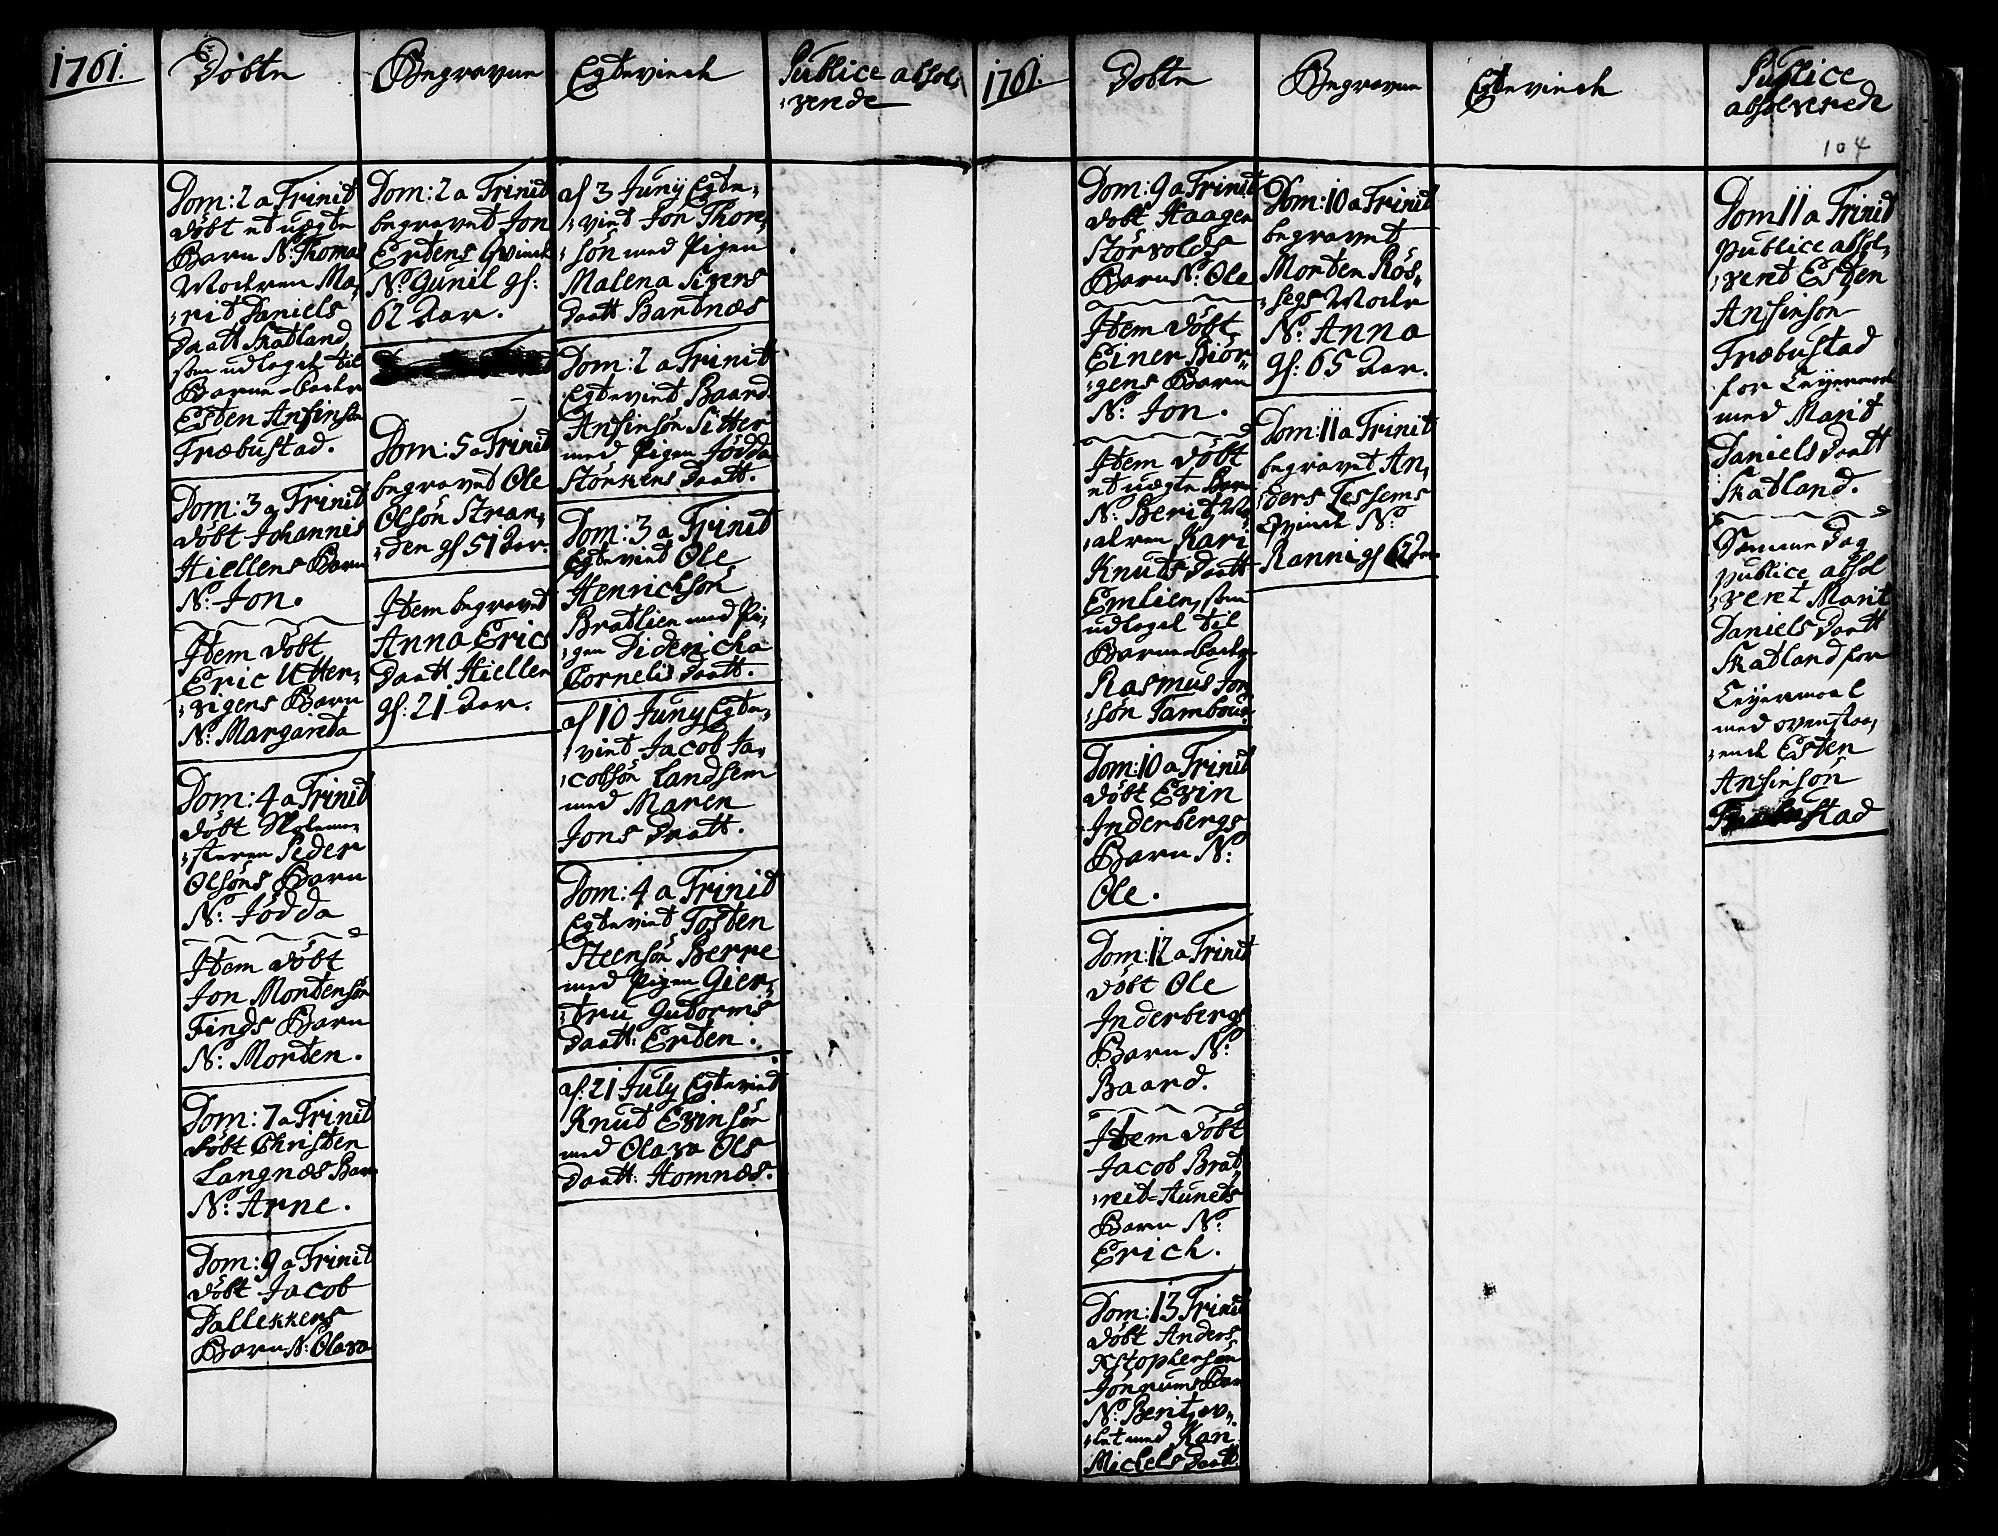 1761.
Döbte
Dom: 2 a Trinit
döbt et uægte
Barn N: Thoma
Moderen Ma,
,rit Daniels
Daatt Skatland,
som udlagde til
Barne-Fader
Esten Ansinsøn
Træbustad.
Dom: 3 a Trinit
döbt Johannis
Hiellens Barn
N: Jon.
Item döbt
Eric Utter,
,vigens Barn
N: Margareta
Dom: 4 a Trinit
döbt Skoleme,
,steren Peder
Olsöns Barn
N: Jödda
Item döbt
Jon Mortensön
Finds Barn
N: Morten.
Dom: 7 a Trinit
döbt Christen
Langnæs Barn
N: Arne.
Dom: 9 a Trinit
döbt Jacob
Dallekkens
Barn N: Olava
Begravne
Dom: 2 a Trinit
begravet Jon
Erdens Qvinde
N: Gunil gl:
62 Aar.
Dom: 5 a Trinit
begravet Ole
Olsön Stran,
,den gl 51 Aar.
Item begravet
Anna Erics
Daatt Hiellen
gl: 21 Aar.
Egteviede
af 3 Junij Egte,
,viet Jon Thor,
,sön med Pigen
Malena Sivers
Daatt Bartnæs
Dom: 2 a Trinit
Egteviet Baard
Ansinsön Sitter
med Pigen Jödda
Störkers Daatt.
Dom: 3 a Trinit
Egteviet Ole
Henrichsön
Bratlien med Pi,
,gen Didericha
Cornelis Daatt.
af 10 Juny Egte,
,viet Jacob Ja,
,cobsön Landsem
med Maren
Jons Daatt.
Dom: 4 a Trinit
Egteviet Tosten
Steensön Berre
med Pigen Gier,
,tru Gutorms
Daatt: Erten.
af: 21 July Egteviet
Knud Evinsön
med Olava Ols
Daatt: Homnæs.
Publice absol,
,verede
1761.
Döbte
Dom: 9 a Trinit
döbt Haagen
Störvolds
Barn N: Ole
Item döbt
Einer Biör,
,gens Barn
N: Jon.
Item döbt
et uægte Barn
N: Berit, Mo,
,deren Kari
Knuts Daatt
Emlien, som
udlagde til
Barne-Fader
Rasmus Jon,
,sön Tambour.
Dom: 10 a Trinit
döbt Evin
Inderbergs
Barn N:
Ole.
Dom: 12 a Trinit
döbt Ole
Inderbergs
Barn N:
Baard.
Item döbt
Jacob Brat,
,reit-Aunets
Barn N:
Erich.
Dom: 13 Trinit
döbt Anders
Xstophersön
Jörnums Barn
N: Berit, av,
,let med Kari
Michels Daatt.
Begravne
Dom: 10 a Trinit
begravet
Morten Rös,
,segs Moder
N: Anna
gl: 65 Aar.
Dom: 11 a Trinit
begravet An,
,ders Tessems
Qvinde N:
Ranni gl 62 Aar
Egteviede
Publice
absolverede
104
Dom 11 a Trinit
publice absol,
,veret Esten
Ansinsön
Træbustad
for Leyermaal
med Marit
Daniels Daatt
Skatland.
Samme Dag
publice absol
,veret Marit
Daniels Daatt
Skatland for
Leyermaal
med ovenstaa,
,ende Esten
Ansinsön
Træbustad